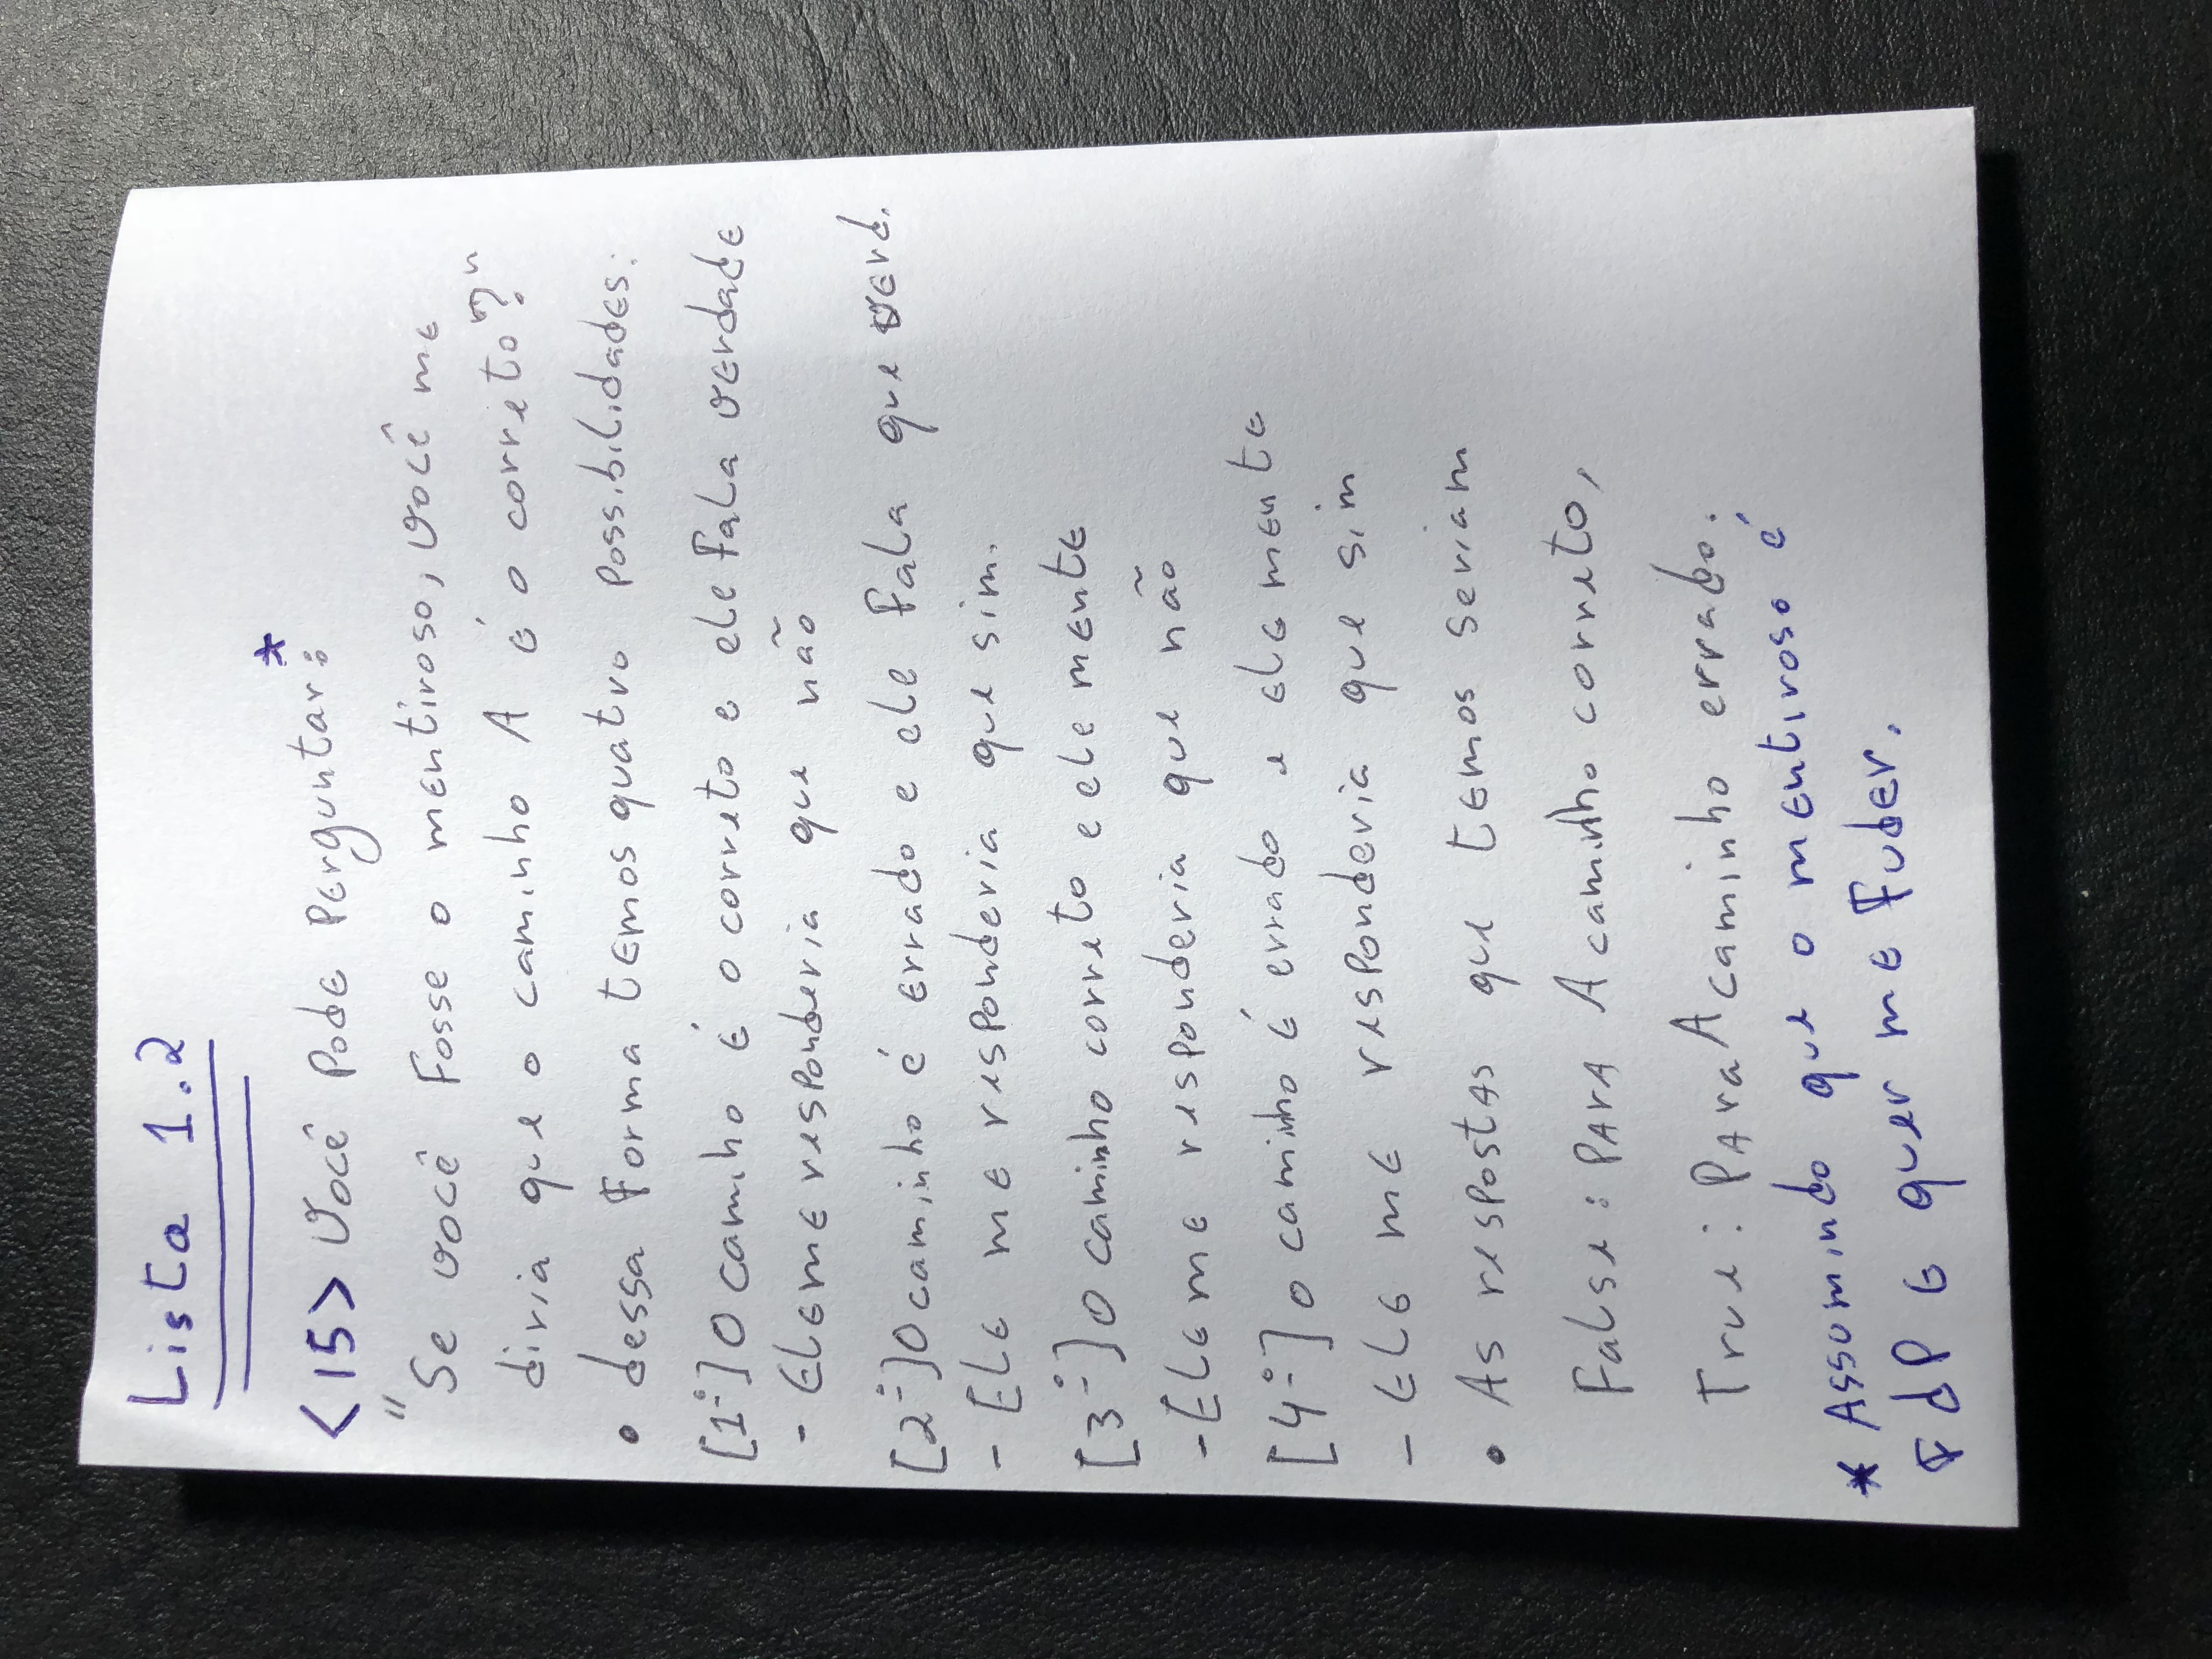 Lista 1.2
<15> Você pode perguntar:*
"Se você fosse o mentiroso, você me
diria que o caminho A é o correto?"
• dessa forma temos quatro possibilidades:
[1º] O camiho é o correto e ele fala verdade
- Ele me responderia que não
[2º] O caminho é errado e ele fala que verd.
- Ele me responderia que sim.
[3º] O caminho correto e ele mente
- Ele me responderia que não
[4º] o caminho é errado e ele mente
- Ele me responderia que sim
• As respostas que temos seriam
False: para A caminho correto,
True: Para A caminho errado.
* Assumindo que o mentiroso é
FdP e quer me fuder.